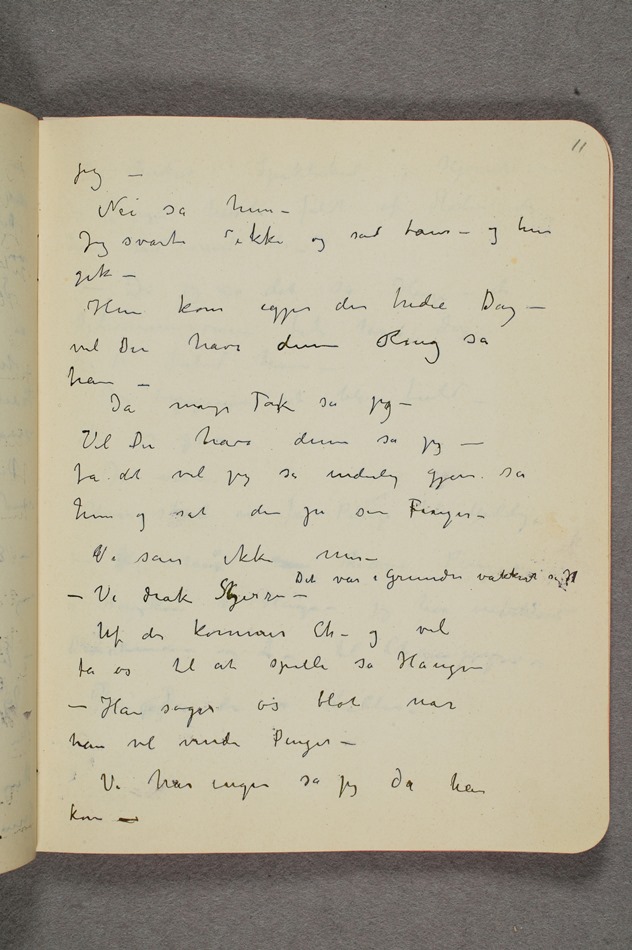 11
jeg –
Nei sa hun –
Jeg svarte ikke og sad taus – og hun
gik –
Hun kom igjen den tredie Dag –
vil De have denne Ring sa
han –
Ja mange Tak sa jeg –
Vil De have denne sa jeg –
Ja det vil jeg så inderlig gjerne sa
hun og sat den på sin Finger –
Vi saes ikke mer –
Det var i Grunden vakkert sagt
– Vi drak Sherry –
Uf der kommer Ch – og vil
ta os til at spille sa Haugen
– Han søger os blot når
han vil vinde Penger –
Vi har ingen sa jeg da han
kom –